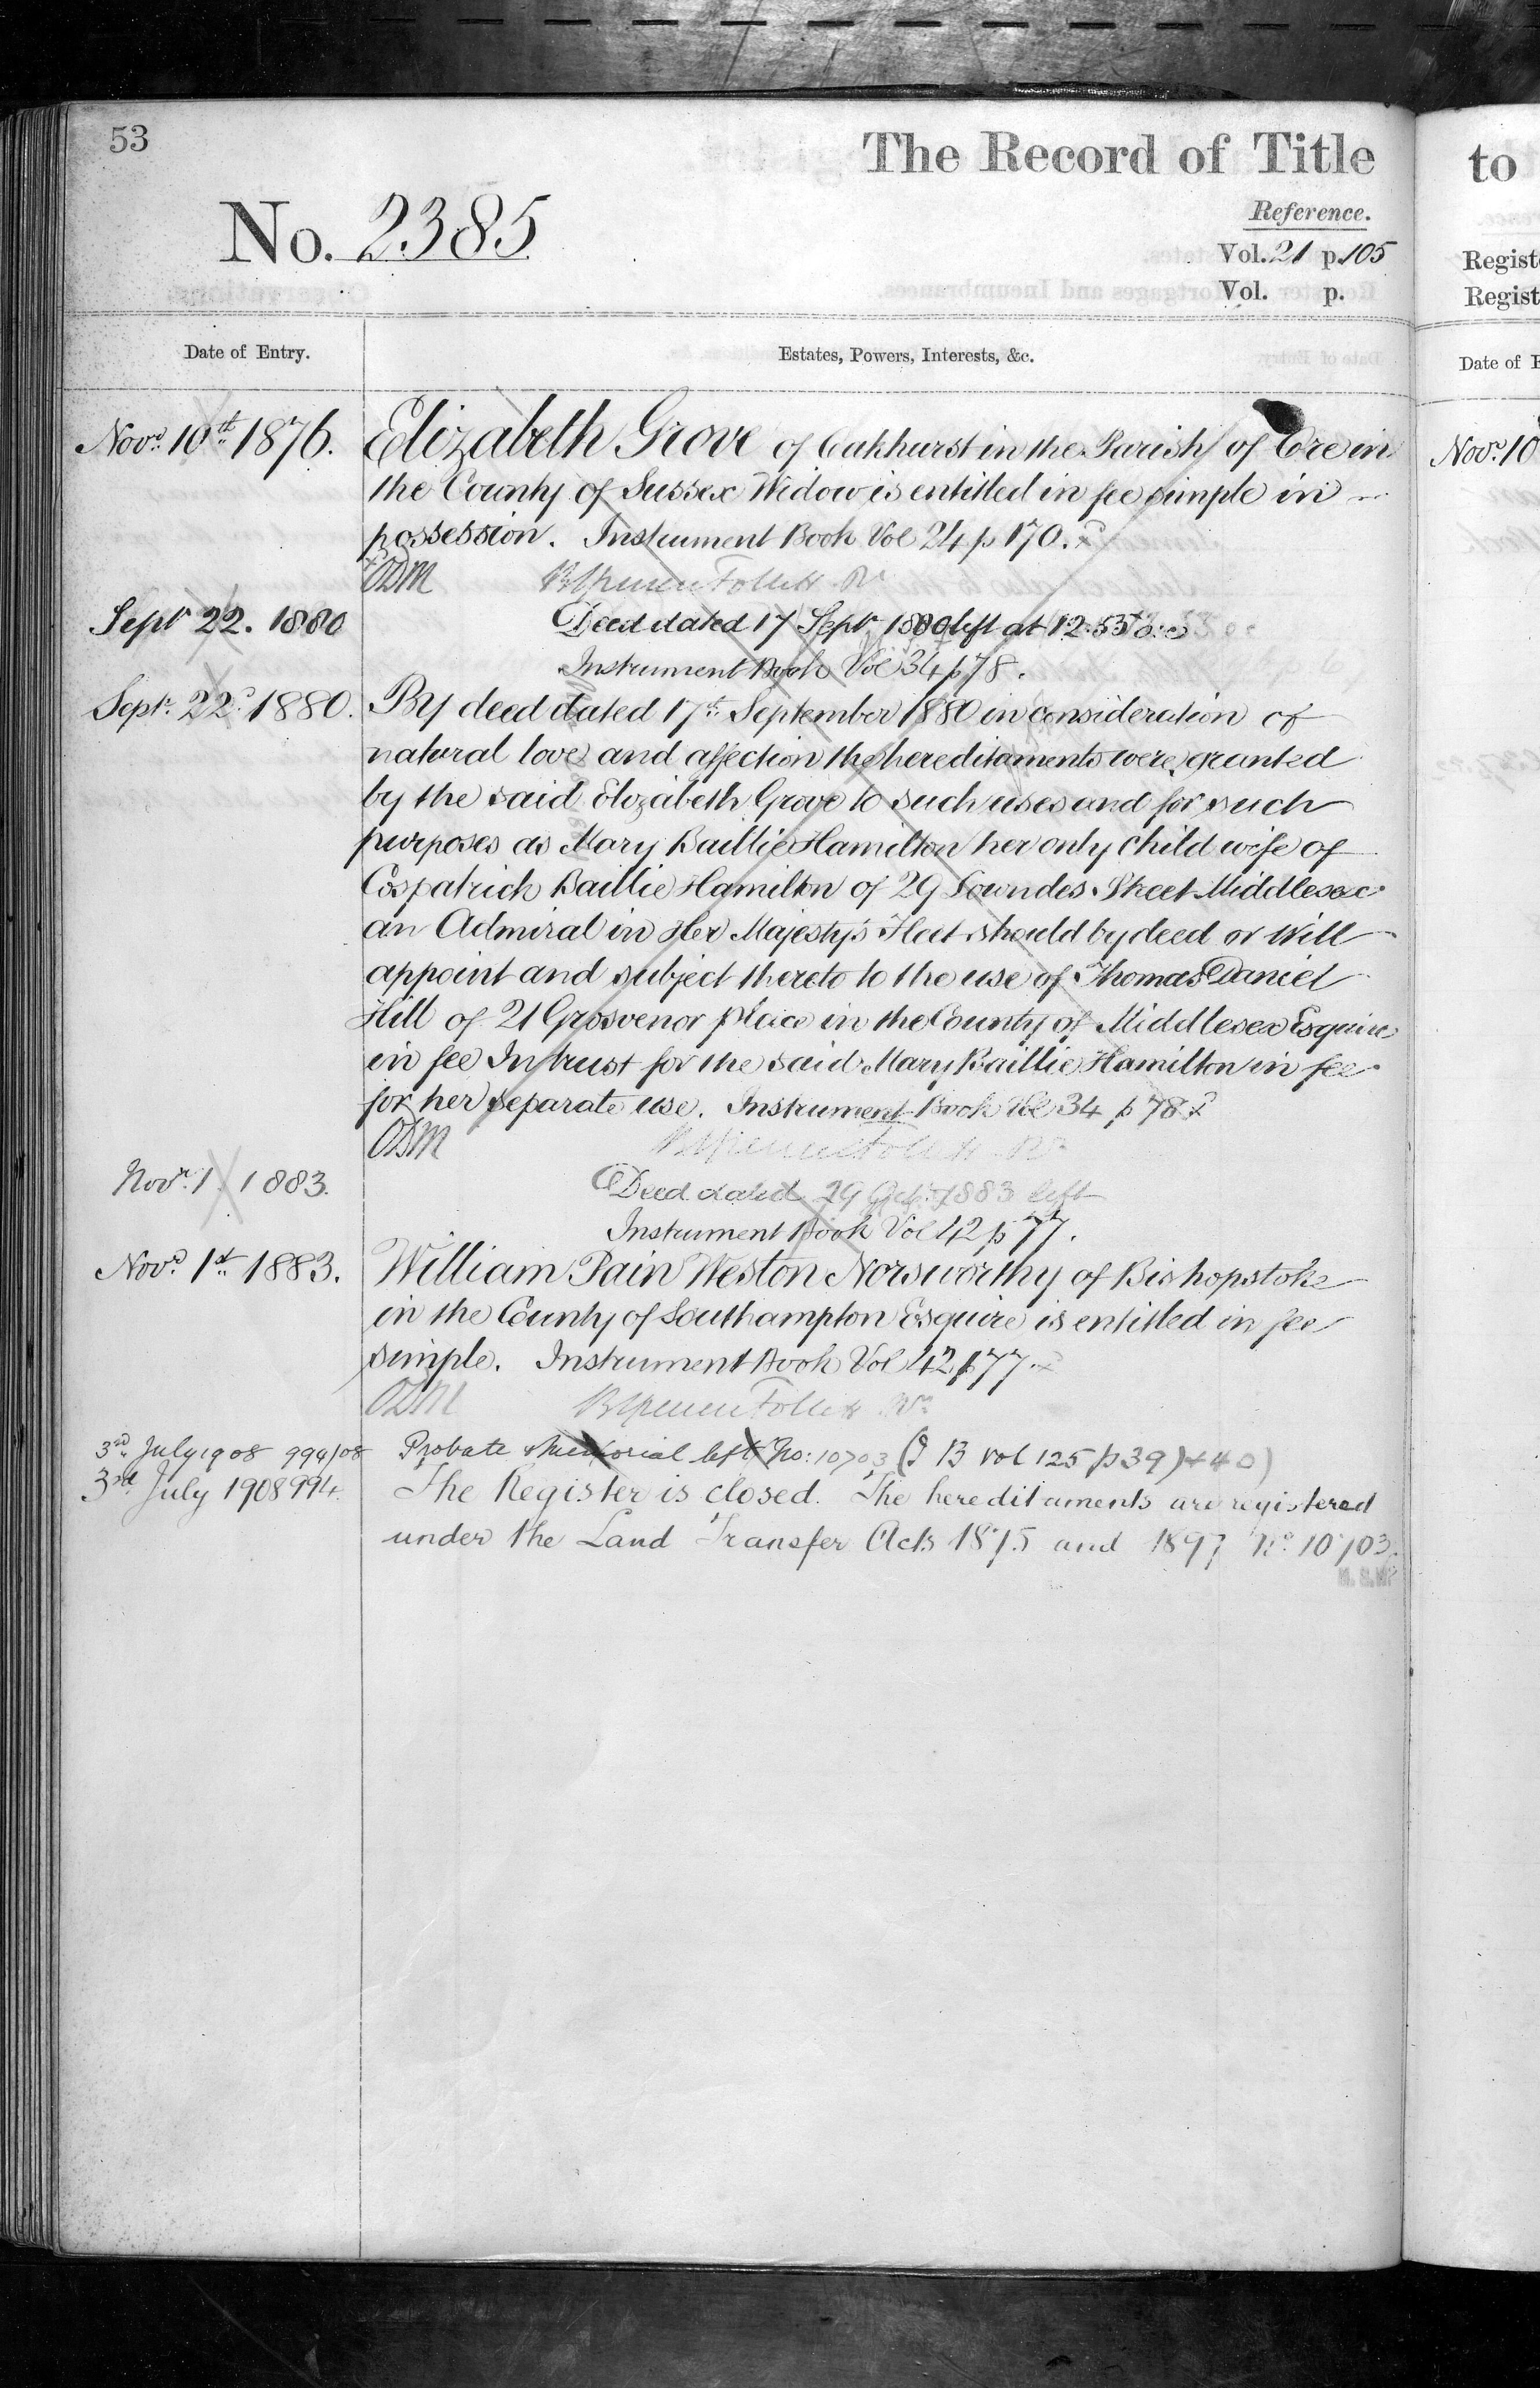 53
The Record of Title
to
No. 2385
Reference.
Vol. 21 p. 105
Vol. p.
Regist
Regist
Date of Entry.
Estates, Powers, Interests, &c.
Date of E
Novr. 10th 1876. Elizabeth Grove of Oakhurst in the Parish of Ore in
the County of Sussex Widow is entitled in fee simple in
possession. Instrument Book Vol 24 p 170.
ODM
Novr. 10
Sept 22. 1880 Deed dated 17 Sept. 1880 left at 12.53
Instrument Book Vol 34 p 78.
Sept. 22. 1880. By deed dated 17th September 1880 in consideration of
natural love and affection the hereditaments were granted
by the said Elizabeth Grove to such uses and for such
purposes as Mary Baillie Hamilton her only child wife of
Cospatrick Baillie Hamilton of 29 Lowndes Street Middlesex
an Admiral in Her Majesty's Fleet should by deed or Will
appoint and subject thereto to the use of Thomas Daniel
Hill of 21 Grosvenor place in the County of Middlesex Esquire
in fee In trust for the said Mary Baillie Hamilton in fee
for her separate use. Instrument Book Vol 34 p 78
ODM
Novr. 1 1883. Deed dated 29 Octr. 1883 left
Instrument Book Vol 42 p 77.
Novr. 1st 1883. William Pain Weston Norsworthy of Bishopstoke
in the County of Southampton Esquire is entitled in fee
simple. Instrument Book Vol 42 p 77.
ODM
3rd July 1908 994/08 Probate & Memorial left No: 10703 (I B vol 125 p 39) + 40)
3rd July 1908 994. The Register is closed. The hereditaments are registered
under the Land Transfer Acts 1875 and 1897 No. 10703.